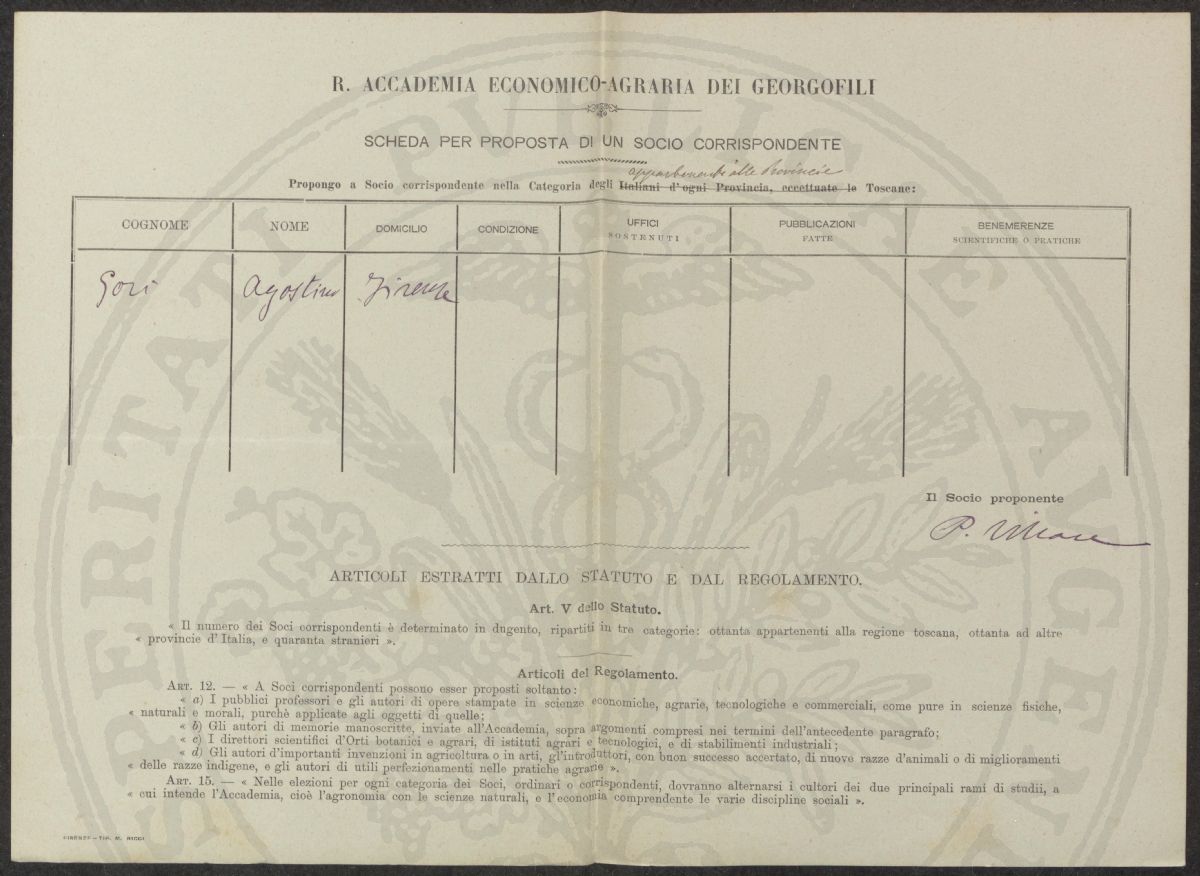 R. ACCADEMIA ECONOMICO-AGRARIA DEI GEORGOFILI
SCHEDA PER PROPOSTA DI UN SOCIO CORRISPONDENTE
appartenenti alle Provincie
Propongo a Socio corrispondente nella Categoria degli Italiani d'ogni Provincia, eccettuate le Toscane:
COGNOME NOME DOMICILIO CONDIZIONE UFFICI SOSTENUTI PUBBLICAZIONI FATTE BENEMERENZE SCIENTIFICHE O PRATICHE
Gori Agostino Firenze
Il Socio proponente
P. Villari
ARTICOLI ESTRATTI DALLO STATUTO E DAL REGOLAMENTO.
Art. V dello Statuto.
« Il numero dei Soci corrispondenti è determinato in dugento, ripartiti in tre categorie: ottanta appartenenti alla regione toscana, ottanta ad altre
« provincie d'Italia, e quaranta stranieri ».
Articoli del Regolamento.
ART. 12. — « A Soci corrispondenti possono esser proposti soltanto:
« a) I pubblici professori e gli autori di opere stampate in scienze economiche, agrarie, tecnologiche e commerciali, come pure in scienze fisiche,
« naturali e morali, purchè applicate agli oggetti di quelle;
« b) Gli autori di memorie manoscritte, inviate all'Accademia, sopra argomenti compresi nei termini dell'antecedente paragrafo;
« c) I direttori scientifici d'Orti botanici e agrari, di istituti agrari e tecnologici, e di stabilimenti industriali;
« d) Gli autori d'importanti invenzioni in agricoltura o in arti, gl'introduttori, con buon successo accertato, di nuove razze d'animali o di miglioramenti
« delle razze indigene, e gli autori di utili perfezionamenti nelle pratiche agrarie ».
ART. 15. — « Nelle elezioni per ogni categoria dei Soci, ordinari o corrispondenti, dovranno alternarsi i cultori dei due principali rami di studii, a
« cui intende l'Accademia, cioè l'agronomia con le scienze naturali, e l'economia comprendente le varie discipline sociali ».
FIRENZE — TIP. M. RICCI
PROSPERITATI PVBLICAE AVGENDAE